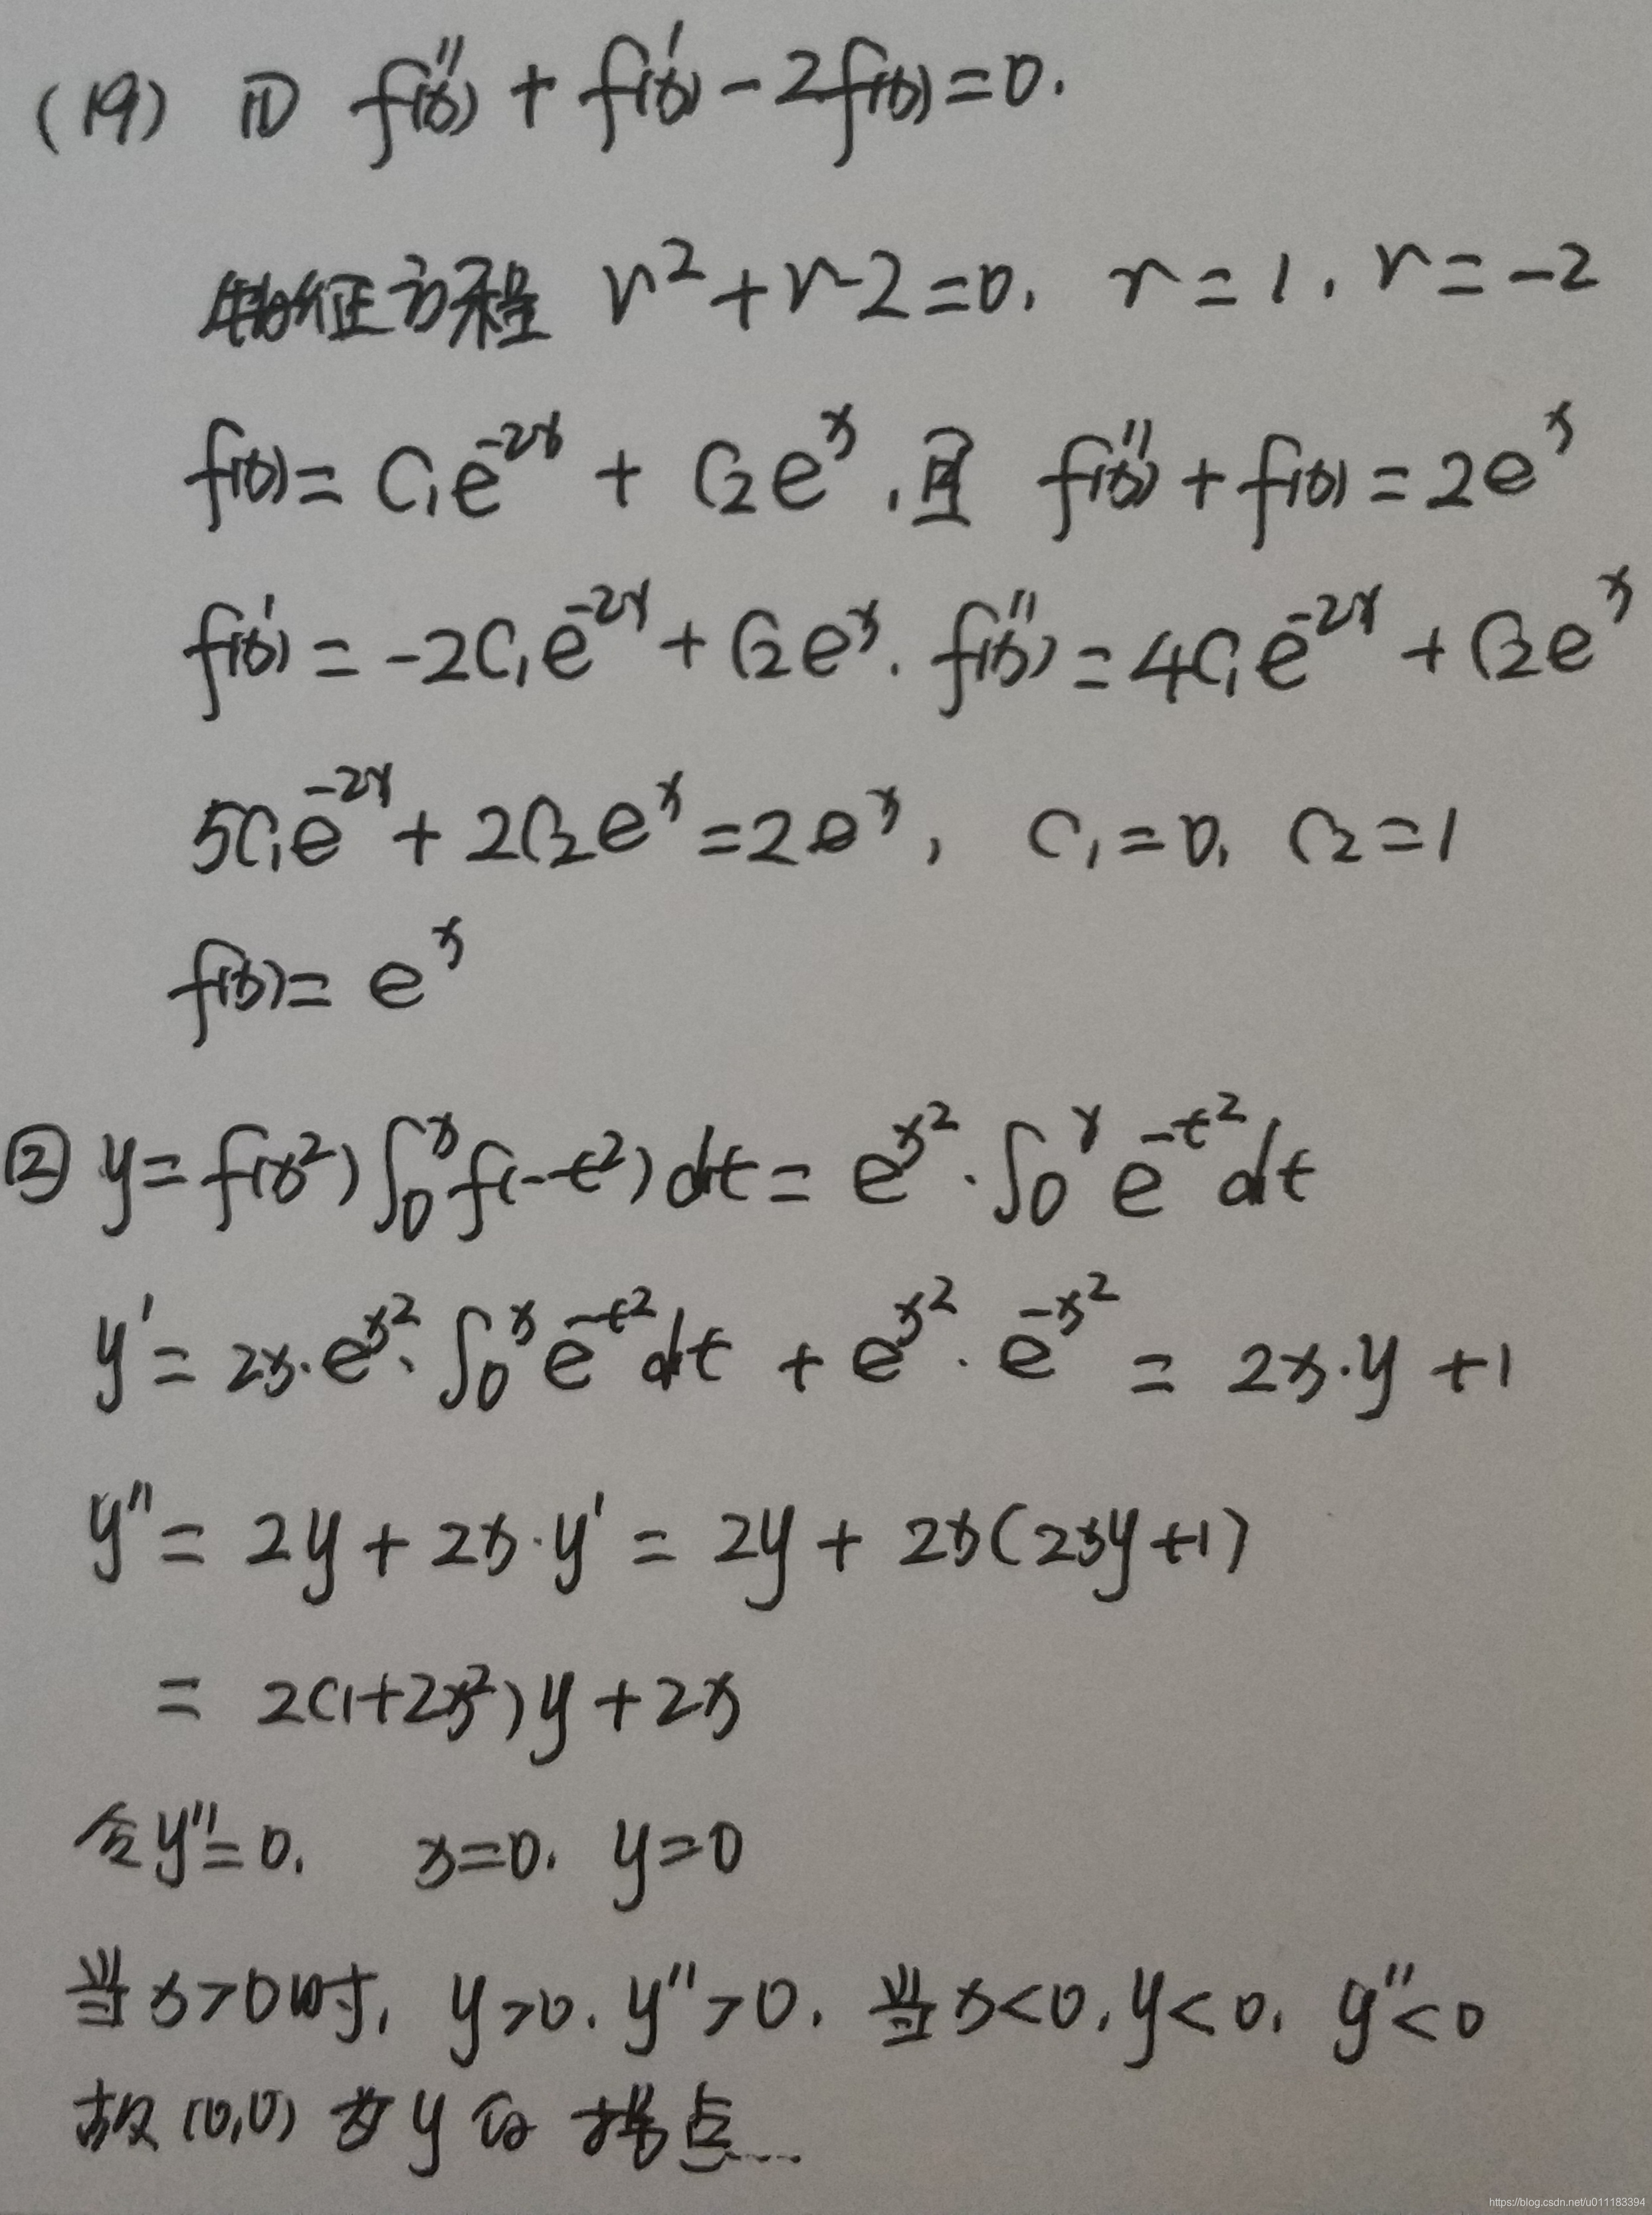 (19) ① f''(x) + f'(x) - 2f(x) = 0.
特征方程 r² + r - 2 = 0. r = 1. r = -2
f(x) = C₁e^{-2x} + C₂e^x. 且 f''(x) + f(x) = 2e^x
f'(x) = -2C₁e^{-2x} + C₂e^x. f''(x) = 4C₁e^{-2x} + C₂e^x
5C₁e^{-2x} + 2C₂e^x = 2e^x, C₁ = 0. C₂ = 1
f(x) = e^x
② y = f(x²)∫₀^x f(-t²)dt = e^{x²}·∫₀^x e^{-t²}dt
y' = 2x·e^{x²}·∫₀^x e^{-t²}dt + e^{x²}·e^{-x²} = 2x·y + 1
y'' = 2y + 2x·y' = 2y + 2x(2xy+1)
= 2(1+2x²)y + 2x
令y''=0. x=0. y=0
当x>0时, y>0. y''>0. 当x<0. y<0. y''<0
故(0,0)为y的拐点...
https://blog.csdn.net/u011183394